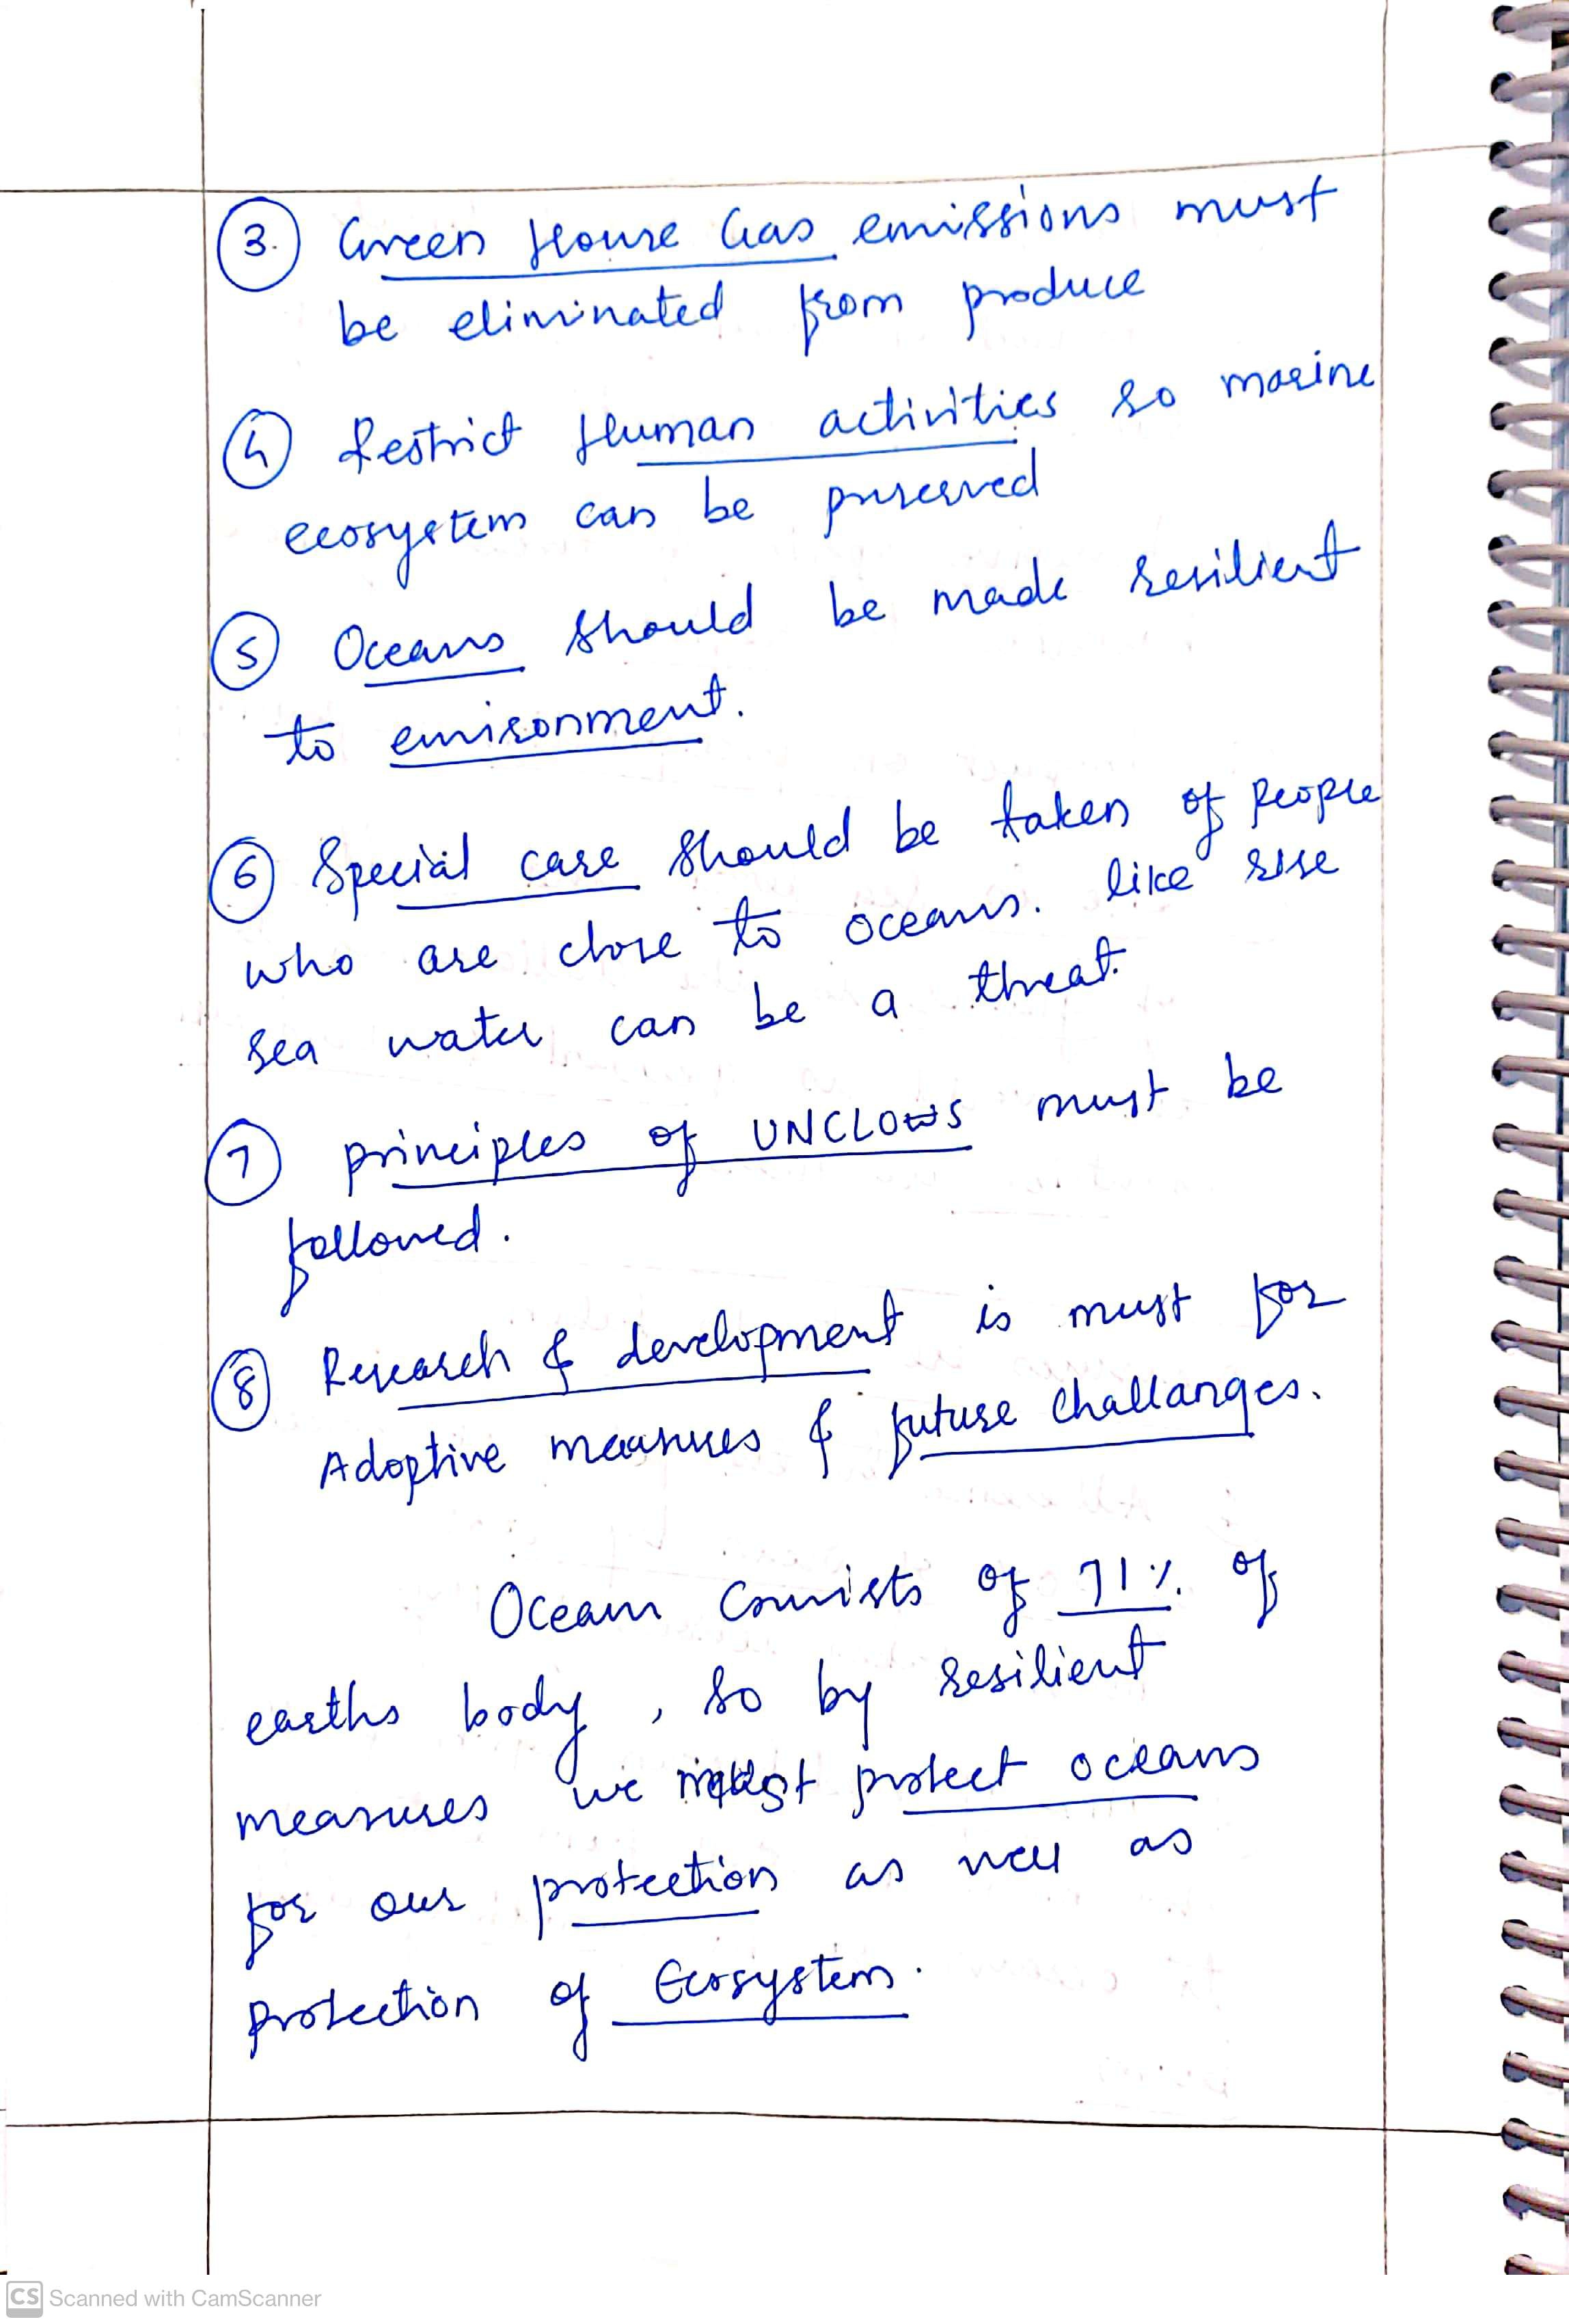 3. Green House Gas emissions must
be eliminated from produce
4 Restrict Human activities so marine
ecosystem can be preserved
5 Oceans should be made resilient
to environment.
6 Special case should be taken of people
who are close to oceans. like rise
sea water can be a threat.
7 principles of UNCLOWS must be
followed.
8 Research & development is must for
Adoptive measures & future challanges.
Ocean consists of 71% of
earths body, so by resilient
measures we must protect oceans
for our protection as well as
protection of Ecosystem.
CS Scanned with CamScanner